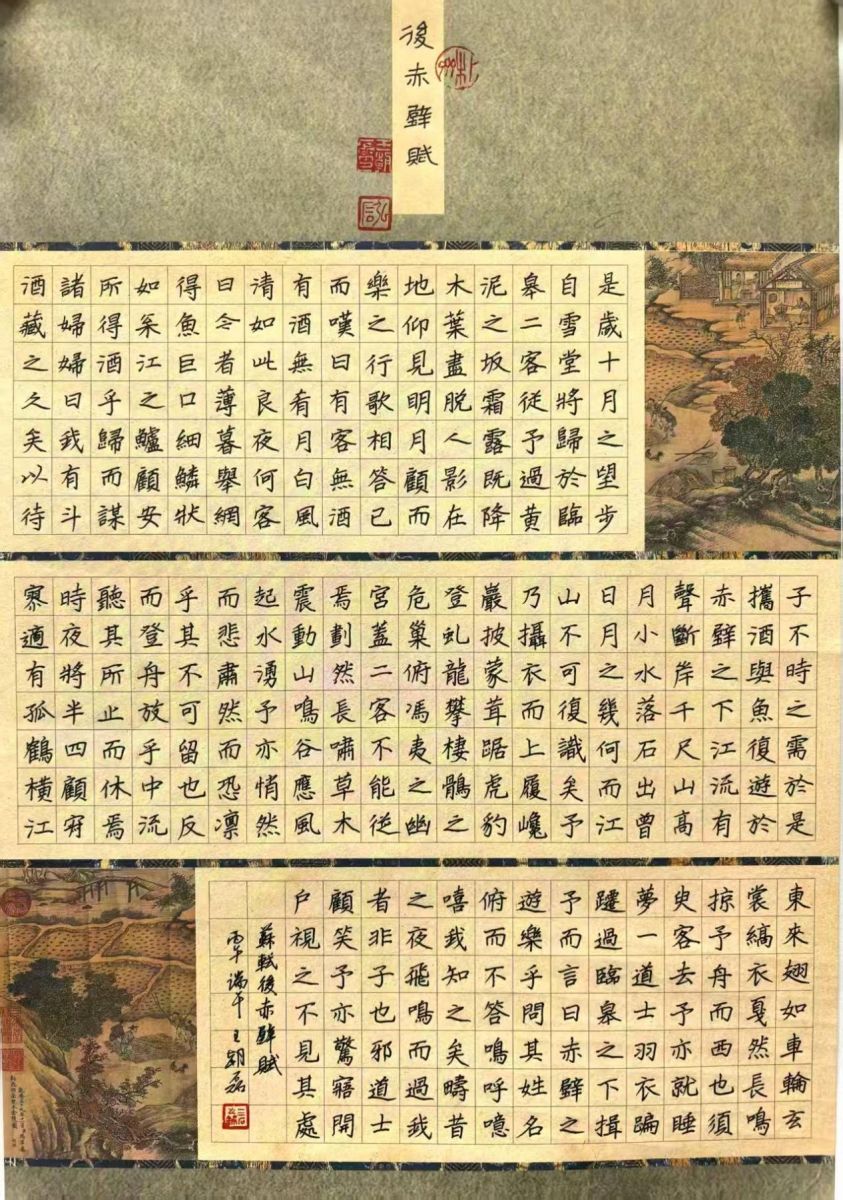 後赤壁賦
是歲十月之望步
自雪堂將歸於臨
皋二客從予過黃
泥之坂霜露既降
木葉盡脫人影在
地仰見明月顧而
樂之行歌相答已
而嘆曰有客無酒
有酒無肴月白風
清如此良夜何客
曰今者薄暮舉網
得魚巨口細鱗狀
如枀江之鱸顧安
所得酒乎歸而謀
諸婦婦曰我有斗
酒藏之久矣以待
子不時之需於是
攜酒與魚復遊於
赤壁之下江流有
聲斷岸千尺山高
月小水落石出曾
日月之幾何而江
山不可復識矣予
乃攝衣而上履巉
巖披蒙茸踞虎豹
登虬龍攀棲鶻之
危巢俯馮夷之幽
宮蓋二客不能從
焉劃然長嘯草木
震動山鳴谷應風
起水湧予亦悄然
而悲肅然而恐凜
乎其不可留也反
而登舟放乎中流
聽其所止而休焉
時夜將半四顧寂
寥適有孤鶴橫江
東來翅如車輪玄
裳縞衣戛然長鳴
掠予舟而西也須
臾客去予亦就睡
夢一道士羽衣蹁
躚過臨皋之下揖
予而言曰赤壁之
遊樂乎問其姓名
俯而不答嗚呼噫
嘻我知之矣疇昔
之夜飛鳴而過我
者非子也邪道士
顧笑予亦驚寤開
戶視之不見其處
蘇軾後赤壁賦
丙午端午王朝磊